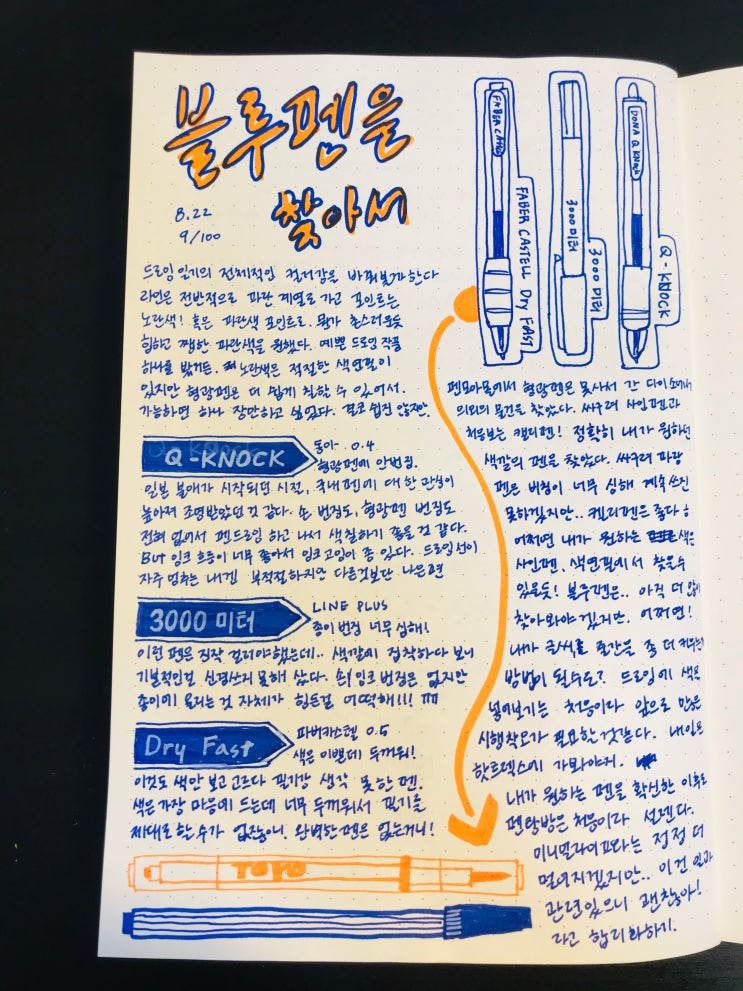 블루펜을
찾아서
8.22
9/100
드로잉 일기의 전체적인 컬러감을 바꿔볼까 한다
라인은 전반적으로 파란 계열로 가고 포인트는
노란색! 혹은 파란색 포인트로. 뭔가 촌스러운듯
힙하고 쨍한 파란색을 원했다. 예쁜 드로잉 작품
하나를 봤거든. 노란색은 적절한 색연필이
있지만 형광펜은 더 쉽게 칠할 수 있어서.
가능하면 하나 장만하고 싶었다. 결코 쉽진 않지만.
Q-KNOCK
동아 0.4
형광펜에 안번짐.
일본 불매가 시작되던 시점, 국내펜에 대한 관심이
높아져 조명받았던 것 같다. 손 번짐도, 형광펜 번짐도
전혀 없어서 펜드로잉 하고 나서 색칠하기 좋을 것 같다.
But 잉크 흐름이 너무 좋아서 잉크고임이 좀 있다. 드로잉 선이
자주 멈추는 내겐 부적절하지만 다른것보단 나은편
3000 미터
LINE PLUS
종이 번짐 너무 심해!
이런 펜은 진작 걸러야 했는데.. 색깔에 집착하다 보니
기본적인걸 신경쓰지 못해 샀다. 손, 잉크 번짐은 없지만
종이에 올리는 것 자체가 힘든걸 어떡해!!! ㅠㅠ
Dry Fast
파버카스텔 0.5
색은 이쁜데 두꺼워!
이것도 색만 보고 고르다 필기감 생각 못한 펜.
색은 가장 마음에 드는데 너무 두꺼워서 필기를
제대로 할 수가 없잖아. 완벽한 펜은 없는거니!
TOYO
FABER CASTELL
FABER CASTELL Dry FAST
3000 미터
3000 미터
DONA Q KNOCK
Q-KNOCK
펜모아몰에서 형광펜은 못사서 간 다이소에서
의외의 물건을 찾았다. 싸구려 사인펜과
처음보는 캘리펜! 정확히 내가 원하던
색깔의 펜을 찾았다. 싸구려 파랑
펜은 비침이 너무 심해 계속 쓰진
못하겠지만.. 캘리펜은 좋다!
어쩌면 내가 원하는 색은
사인펜, 색연필에서 찾을수
있을듯! 블루펜은.. 아직 더 많이
찾아봐야겠지만. 어쩌면!
내가 글씨를 줄간을 좀 더 키우는게
방법이 될수도? 드로잉에 색은
넣어보기는 처음이라 앞으로 많은
시행착오가 필요할 것같다. 내일은
핫트랙스에 가봐야지.
내가 원하는 펜을 확신한 이후로
펜탐방은 처음이라 설렌다.
미니멀라이프와는 점점 더
멀어지겠지만.. 이건 일과
관련있으니 괜찮아!
라고 합리화하기.